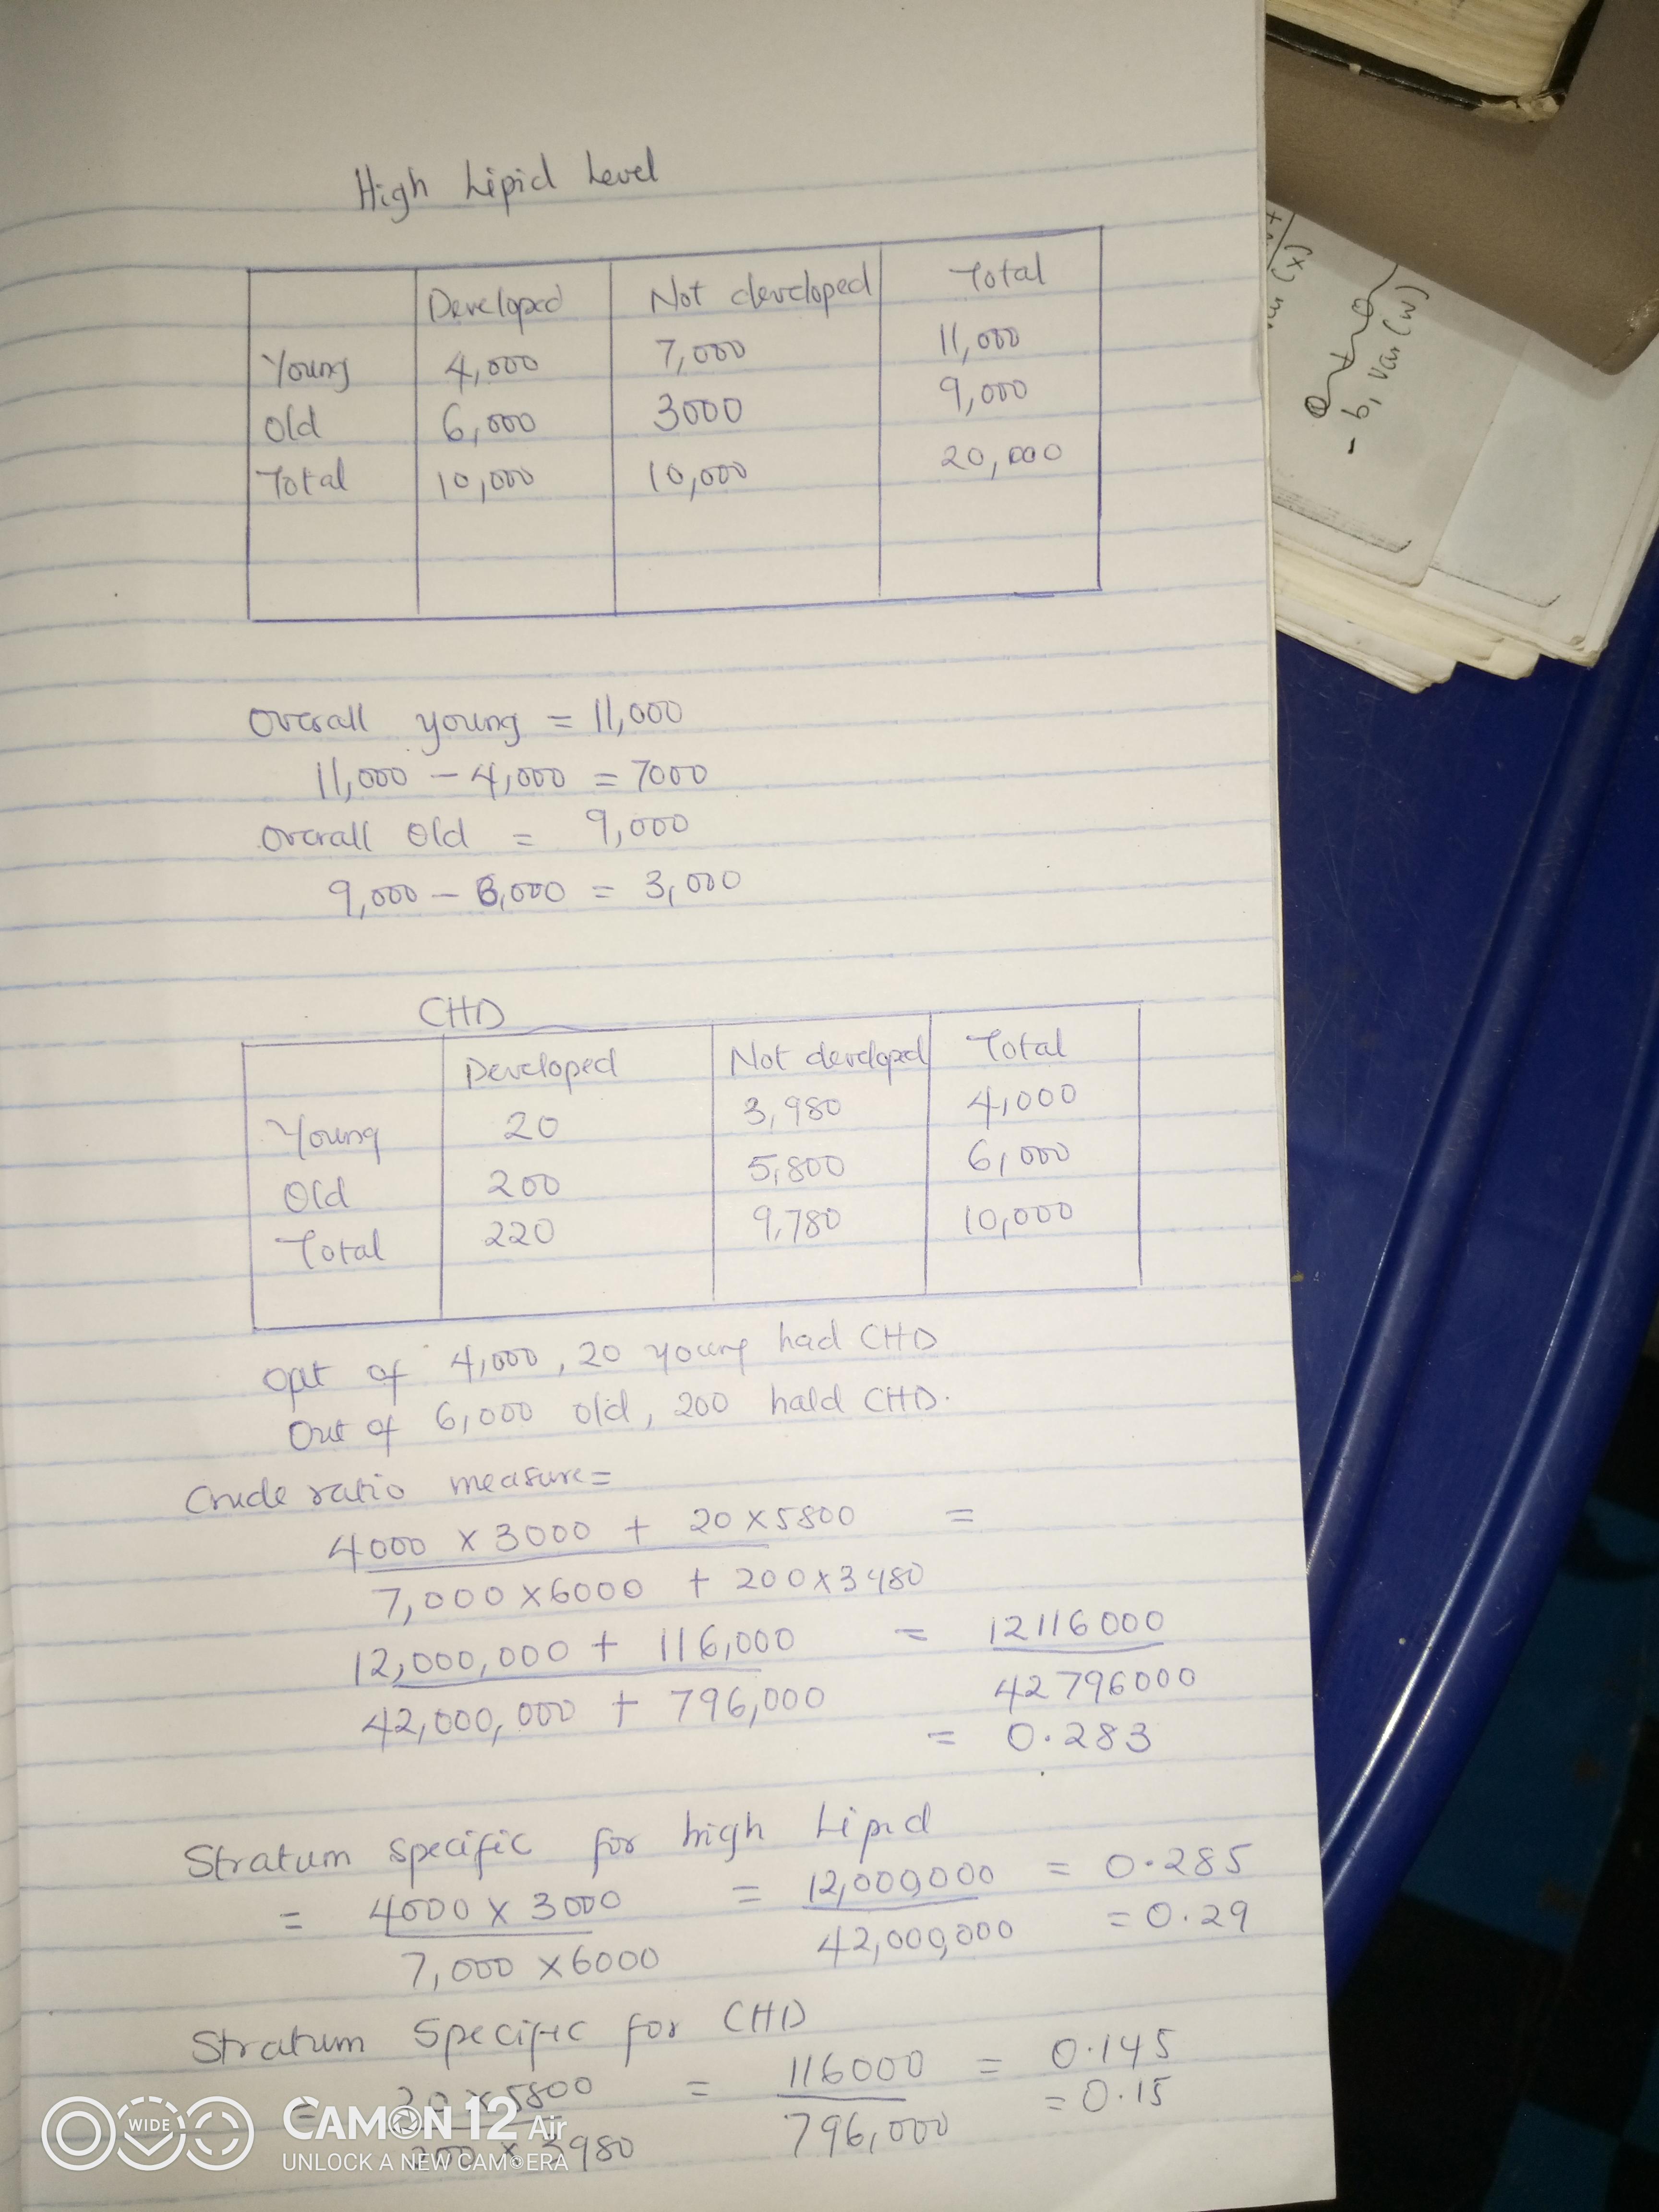 High Lipid Level
Developed Not developed Total
Young 4,000 7,000 11,000
Old 6,000 3000 9,000
Total 10,000 10,000 20,000
Overall young = 11,000
11,000 - 4,000 = 7000
overall old = 9,000
9,000 - 6,000 = 3,000
CHD
Developed Not developed Total
Young 20 3,980 4,000
Old 200 5,800 6,000
Total 220 9,780 10,000
out of 4,000, 20 young had CHD
Out of 6,000 old, 200 hald CHD.
Crude ratio measure =
4000 x 3000 + 20 x 5800 =
7,000 x 6000 + 200 x 3980
12,000,000 + 116,000 = 12116000
42,000,000 + 796,000 42796000
= 0.283
Stratum specific for high Lipid
= 4000 x 3000 = 12,000,000 = 0.285
7,000 x 6000 42,000,000 = 0.29
Stratum Specific for CHD
= 20 x 5800 = 116000 = 0.145
200 x 3980 796,000 = 0.15
- b, Var (w)
(x)
WIDE
CAMON 12 Air
UNLOCK A NEW CAMERA